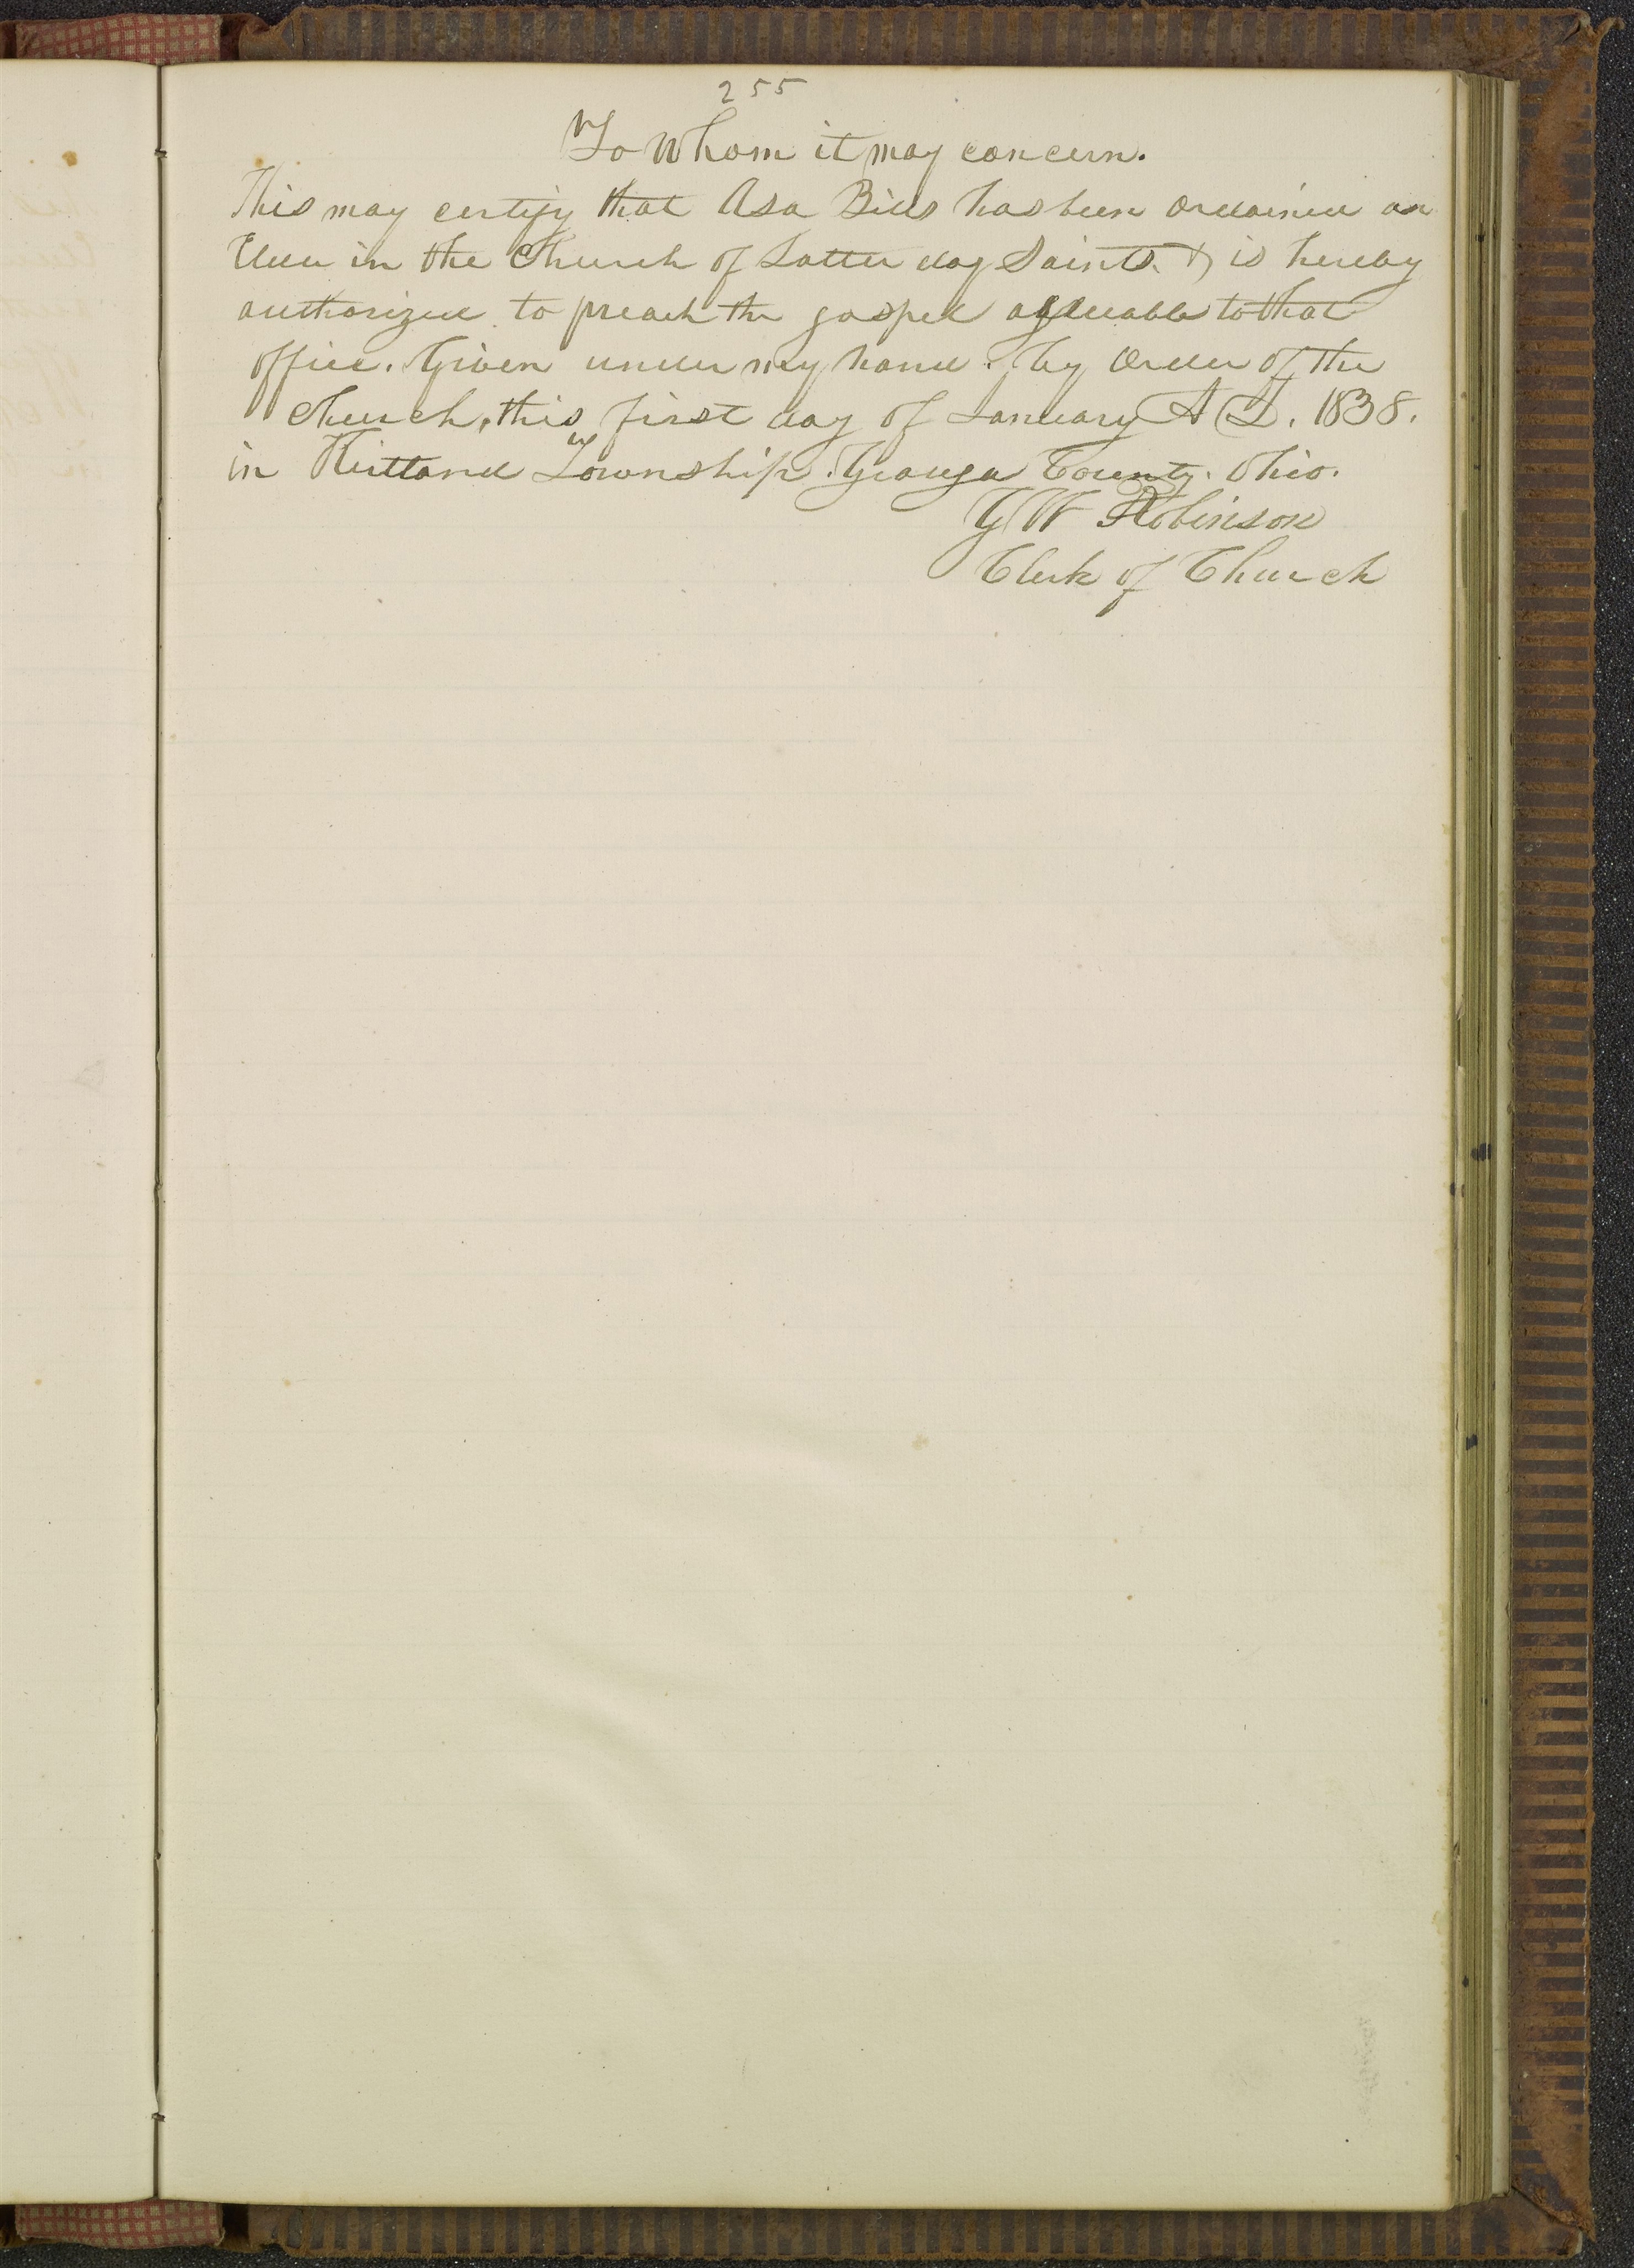 255
To Whom it may concern.
This may certify that Asa Bills has been ordained an
Elder in the Church of Latter day Saints. & is hereby
authorized to preach the gospel agreeable to that
office. Given under my hand. by order of the
church, this first day of January A D. 1838.
in Kirtland Township. Geauga County. Ohio.
G W Robinson
Clerk of Church